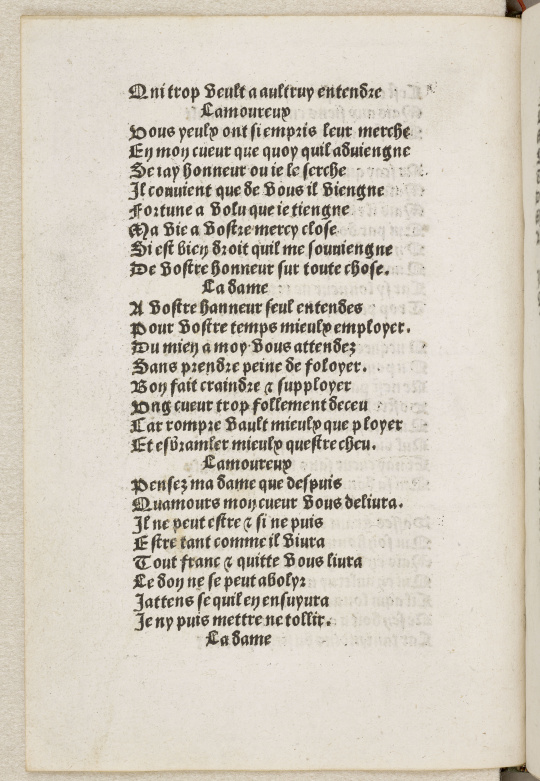 Qui trop veult a aultruy entendre
Lamoureux
Vous yeulx ont si empris leur merche
En mon cueur que quoy quil aduiengne
Se iay honneur ou ie le serche
Il conuient que de vous il viengne
Fortune a volu que ie tiengne
Ma vie a vostre mercy close
Si est bien droit quil me souuiengne
De vostre honneur sur toute chose.
La dame
A vostre hanneur seul entendes
Pour vostre temps mieulx employer.
Du mien a moy vous attendez
Sans prendre peine de foloyer.
Bon fait craindre ⁊ supployer
Vng cueur trop follement deceu
Car rompre vault mieulx que ployer
Et esbranler mieulx questre cheu.
Lamoureux
Pensez ma dame que despuis
Quamours mon cueur vous deliura.
Il ne peut estre ⁊ si ne puis
Estre tant comme il viura
Tout franc ⁊ quitte vous liura
Ce don ne se peut abolyr
Jattens se quil en ensuyura
Je ny puis mettre ne tollir.
La dame